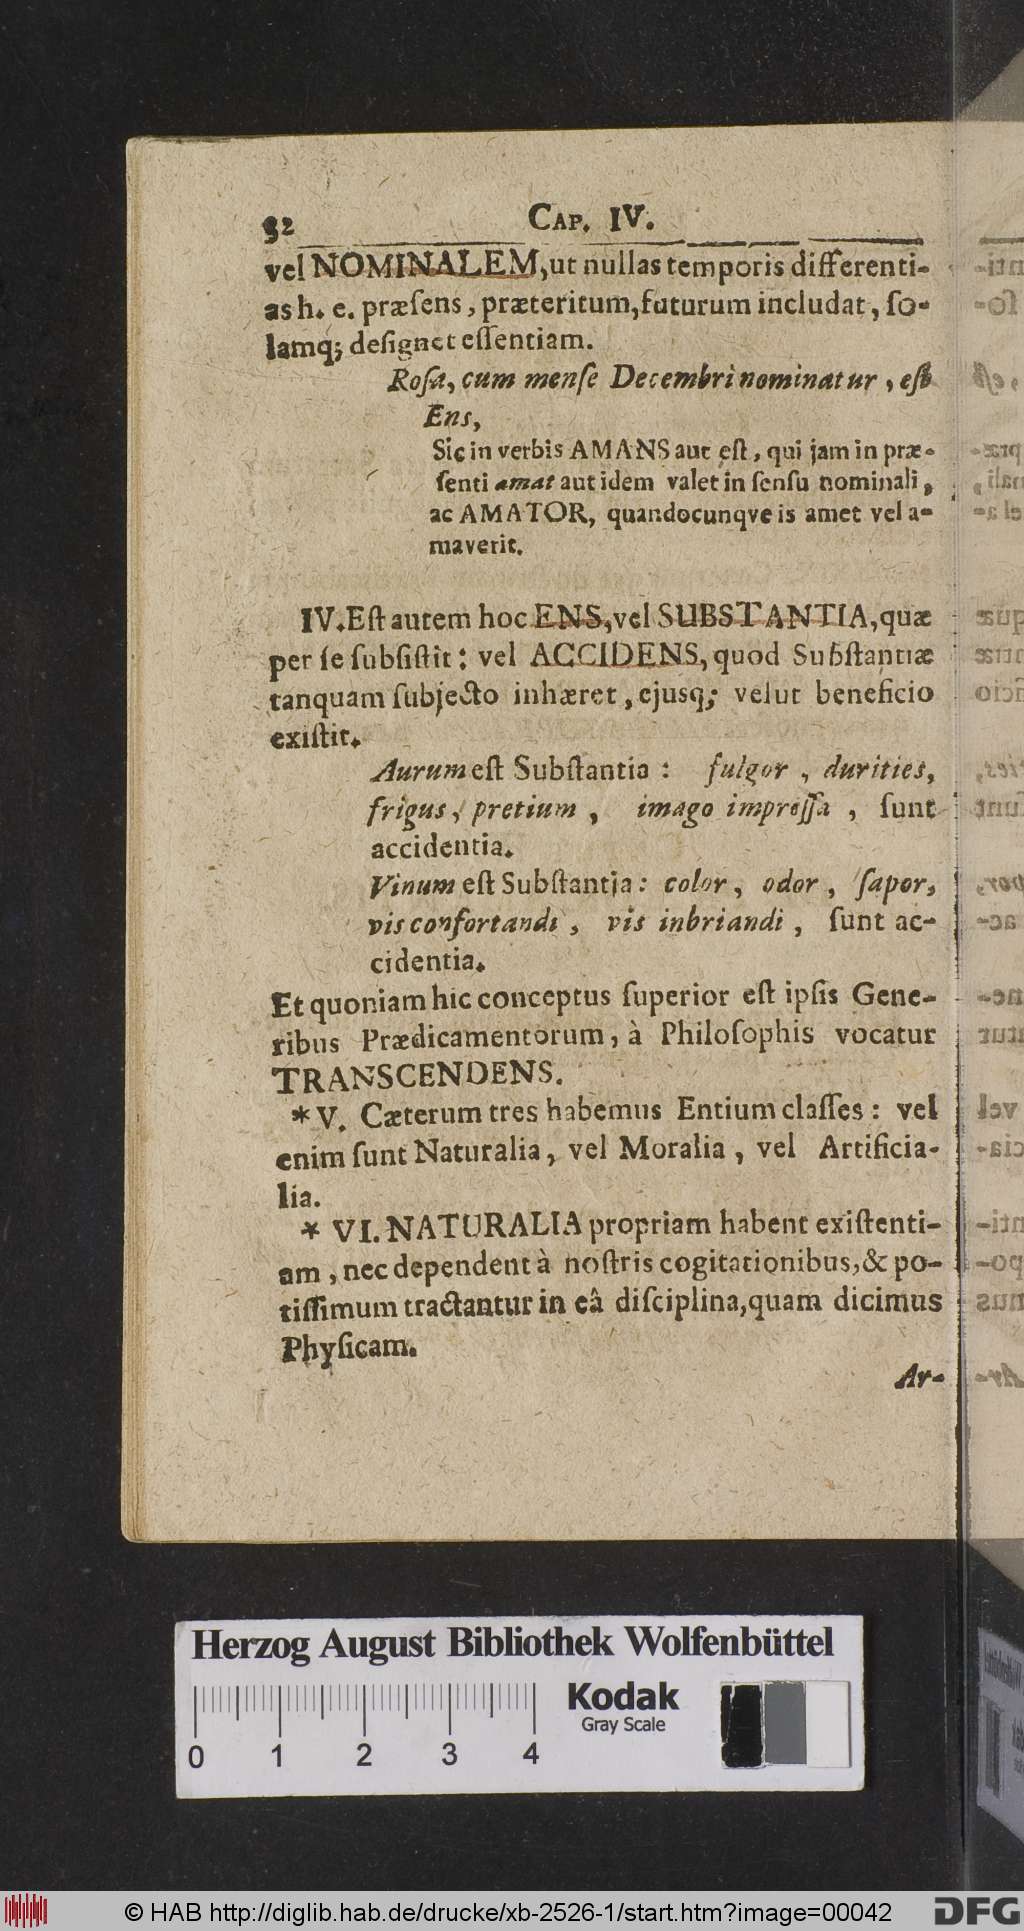 32 CAP. IV.
vel NOMINALEM, ut nullas temporis differenti-
as h. e. præſens, præteritum, futurum includat, ſo-
lamq; deſignet eſſentiam.
Roſa, cum menſe Decembri nominatur, eſt
Ens,
Sic in verbis AMANS aut eſt, qui jam in præ-
ſenti amat aut idem valet in ſenſu nominali,
ac AMATOR, quandocunqve is amet vel a-
maverit.
IV. Eſt autem hoc ENS, vel SUBSTANTIA, quæ
per ſe ſubſiſtit: vel ACCIDENS, quod Subſtantiæ
tanquam ſubjecto inhæret, ejusq; velut beneficio
exiſtit.
Aurum eſt Subſtantia: fulgor, durities,
frigus, pretium, imago impreſſa, ſunt
accidentia.
Vinum eſt Subſtantia: color, odor, ſapor,
vis confortandi, vis inbriandi, ſunt ac-
cidentia.
Et quoniam hic conceptus ſuperior eſt ipſis Gene-
ribus Prædicamentorum, à Philoſophis vocatur
TRANSCENDENS.
* V. Cæterum tres habemus Entium claſſes: vel
enim ſunt Naturalia, vel Moralia, vel Artificia-
lia.
* VI. NATURALIA propriam habent exiſtenti-
am, nec dependent à noſtris cogitationibus, & po-
tiſſimum tractantur in eâ diſciplina, quam dicimus
Phyſicam.
Ar-
Herzog August Bibliothek Wolfenbüttel
Kodak
Gray Scale
0 1 2 3 4
© HAB http://diglib.hab.de/drucke/xb-2526-1/start.htm?image=00042
DFG